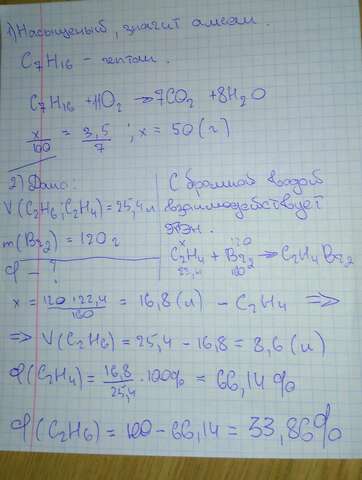 1) Насыщеный, значит алкан.
C7H16 - гептан.
C7H16 + 11O2 → 7CO2 + 8H2O
x/100 = 3,5/7 ; x = 50 (г)
2) Дано:
V(C2H6; C2H4) = 25,4 л
m(Br2) = 120 г
φ - ?
С бромной водой
взаимодействует
этэн.
x 120
C2H4 + Br2 → C2H4Br2
22,4 160
x = 120·22,4/160 = 16,8 (л) - C2H4 ⇒
⇒ V(C2H6) = 25,4 - 16,8 = 8,6 (л)
φ(C2H4) = 16,8/25,4 · 100% = 66,14%
φ(C2H6) = 100 - 66,14 = 33,86%